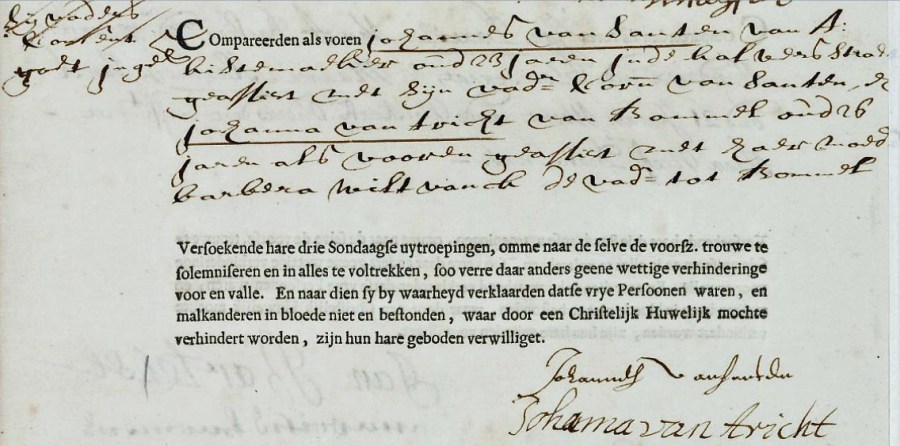 sijn vaders
consent is
goet ingeb
Compareerden als voren Johannes van Santen van A:
kistemaecker oud 23 jaren in de kalverstraet
geassist met sijn vadr Corn van Santen, &
Johanna van Tricht van Bommel oud 26
jaren als vooren geassist met haer moedr
barbera wiltvanck de vadr tot Bommel
Versoekende hare drie Sondaagse uytroepingen, omme naar de selve de voorsz. trouwe te
solemniseren en in alles te voltrekken, soo verre daar anders geene wettige verhinderinge
voor en valle. En naar dien sy by waarheyd verklaarden datse vrye Persoonen waren, en
malkanderen in bloede niet en bestonden, waar door een Christelijk Huwelijk mochte
verhindert worden, zijn hun hare geboden verwilliget.
Johannes van santen
Johanna van tricht